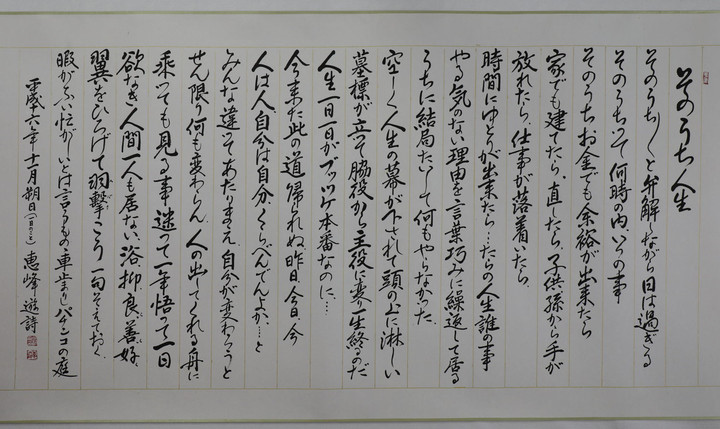 そのうち人生
そのうち〱と弁解しながら日は過ぎる
そのうちって何時の内、いつの事
そのうちお金でも余裕が出来たら
家でも建てたら、直したら、子供、孫から手が
放れたら、仕事が落着いたら、
時間にゆとりが出来たら……たらの人生誰の事
やる気のない理由を言葉巧みに繰返して居る
うちに結局たいして何もやらなかった、
空しく人生の幕が下されて頭の上に淋しい
墓標が立て脇役から主役に変り一生終るのだ
人生一日一日がブッツケ本番なのに…、
今来た此の道帰られぬ、昨日、今日、今
人は人自分は自分、くらべんでんよか…と
みんな違ってあたりまえ、自分が変わろうと
せん限り何も変わらん、人の出してくれる舟に
乗っても見る事、迷って一年悟って一日
欲なき人間一人も居ない、浴抑良善好、
翼をひろげて羽撃こう 一句そえておく、
暇がない忙がしいとは言うもの車止まりパチンコの庭
平成十六年十一月朔日(一日のこと) 恵峰 遊詩